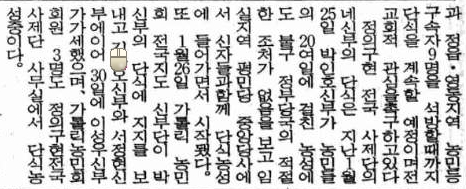 과 정읍·영동지역 농민등
구속자9명을 석방할때까지
단식을 계속할 예정이며전
교회적 관심을촉구하고있다
정의구현 전국 사제단의
네신부의 단식은 지난1월
25일 박인호신부가 농민들
의 20여일에 걸친 농성에
도 불구 정부당국의 적절
한 조처가 없음을보고 임
실지역 평민당 중앙당사에
서 신자들과함께 단식농성
에 들어가면서 시작됐다.
또 1월26일 가톨릭 농민
회 전국지도 신부단이 박
신부의 단식에 지지를 보
내고 서정현신
부에이어 30일에 이성우신부
가가세했으며, 가톨릭농민회
회원 3명도 정의구현전국
사제단 사무실에서 단식농
성중이다.